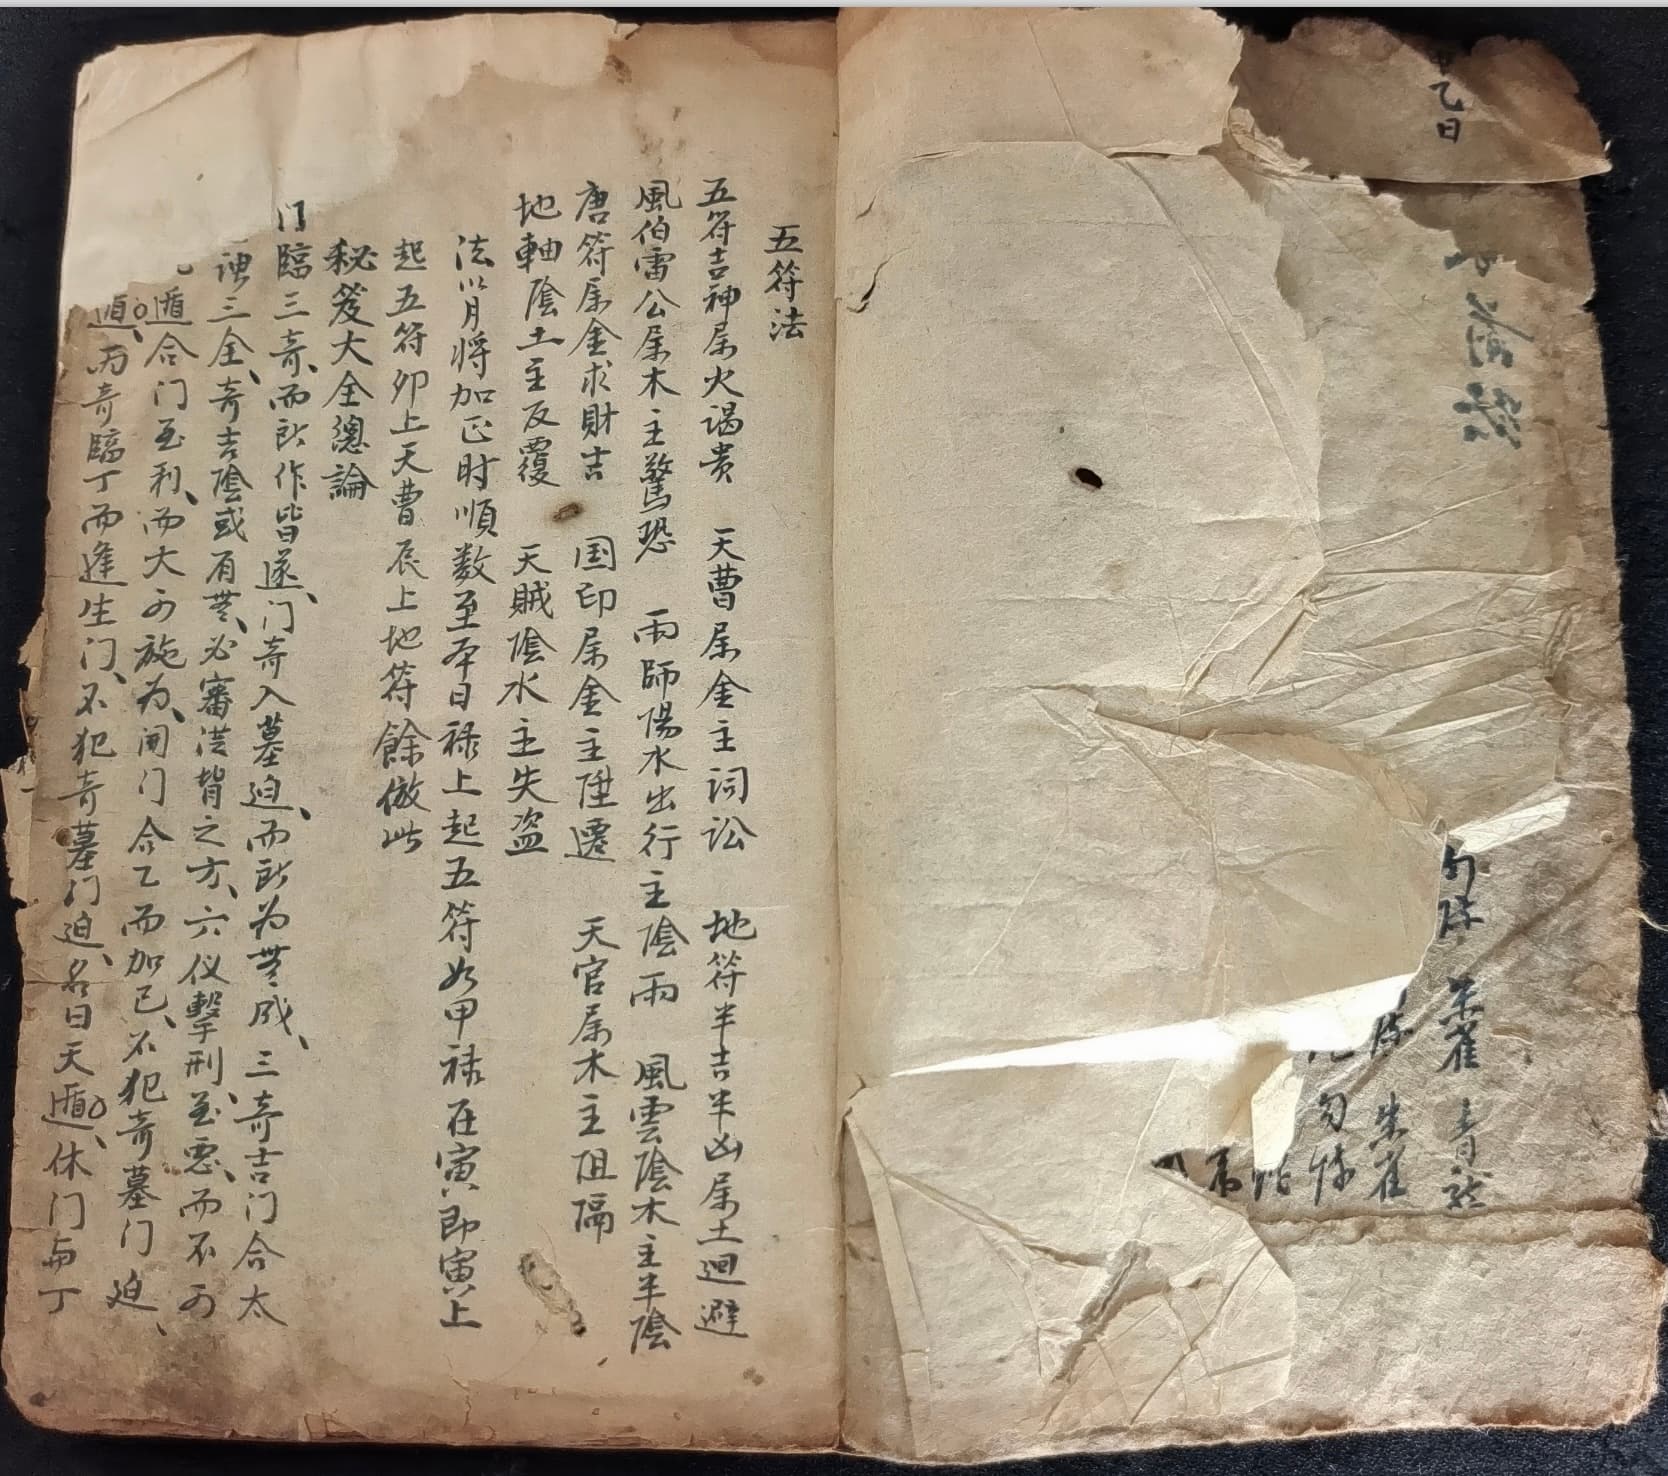 甲乙日
勾陈 朱雀 青龙
陈 朱雀
勾陈
五符法
五符吉神属火谒贵 天曹属金主词讼 地符半吉半凶属土迴避
風伯雷公属木主驚恐 雨師陽水出行主陰雨 風雲陰木主半陰
唐符属金求財吉 国印属金主陞遷 天官属木主阻隔
地軸陰土主反覆 天賊陰水主失盗
法以月将加正时順数至本日禄上起五符如甲禄在寅即寅上
起五符卯上天曹辰上地符餘倣此
秘笈大全總論
门臨三奇、而所作皆遂、门奇入墓迫、而所为無成、三奇吉门合太
三全、奇吉陰或有無、必審向背之方、六仪擊刑、至恶、而不可
遁合门至利、而大可施为、開门合乙而加己、不犯奇墓门迫、
遁、丙奇臨丁而逢生门、不犯奇墓门迫、名曰天遁、休门与丁